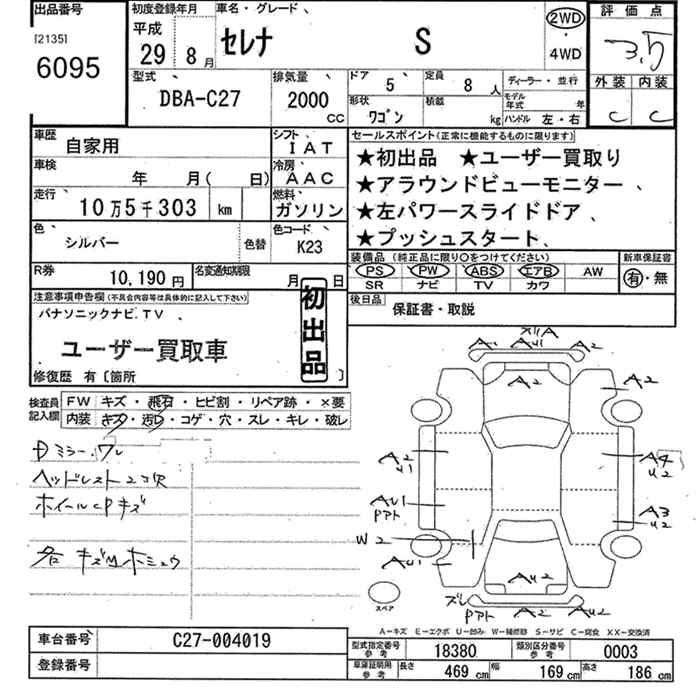 出品番号
[2135]
6095
初度登録年月
平成
29年 8月
車名・グレード
セレナ S
2WD
・
4WD
評価点
3.5
外装 内装
C C
型式
DBA-C27
排気量
2000
CC
ドア
5
定員
8 人
形状
ワゴン
積載
kg
ディーラー・並行
モデル年式 年
ハンドル 左・右
車歴
自家用
シフト
IAT
車検
年 月( 日)
冷房
AAC
走行
10万5千303 km
燃料
ガソリン
色
シルバー
色替
色コード
K23
R券
10,190円
名変通知期限
月 日
セールスポイント(正常に機能するものに限ります)
★初出品 ★ユーザー買取り
★アラウンドビューモニター
★左パワースライドドア
★プッシュスタート
装備品(純正品に限り○をつけてください)
PS PW ABS エアB AW
SR ナビ TV カワ
新車保証書
有・無
後日品
保証書・取説
注意事項申告欄(不具合内容等は具体的に記入して下さい)
パナソニックナビ、TV
ユーザー買取車
初出品
修復歴 有〔箇所 〕
検査員記入欄
FW キズ・飛石・ヒビ割・リペア跡・×要
内装 キズ・汚レ・コゲ・穴・スレ・キレ・破レ
Dミラーワレ
ヘッドレスト2コ欠
ホイールCPキズ
A1 AU1 A2
A2
A2
U1
A4
U2
AU1
Pアト
A3
U2
W2
AU1
AU2
ズレ
Pアト A2 AU2
スペア
A-キズ E-エクボ U-凹み W-補修跡 S-サビ C-腐食 XX-交換済
車台番号
C27-004019
登録番号
型式指定番号
参考
18380
類別区分番号
参考
0003
車庫証明用
参考
長さ 469 cm
幅 169 cm
高さ 186 cm